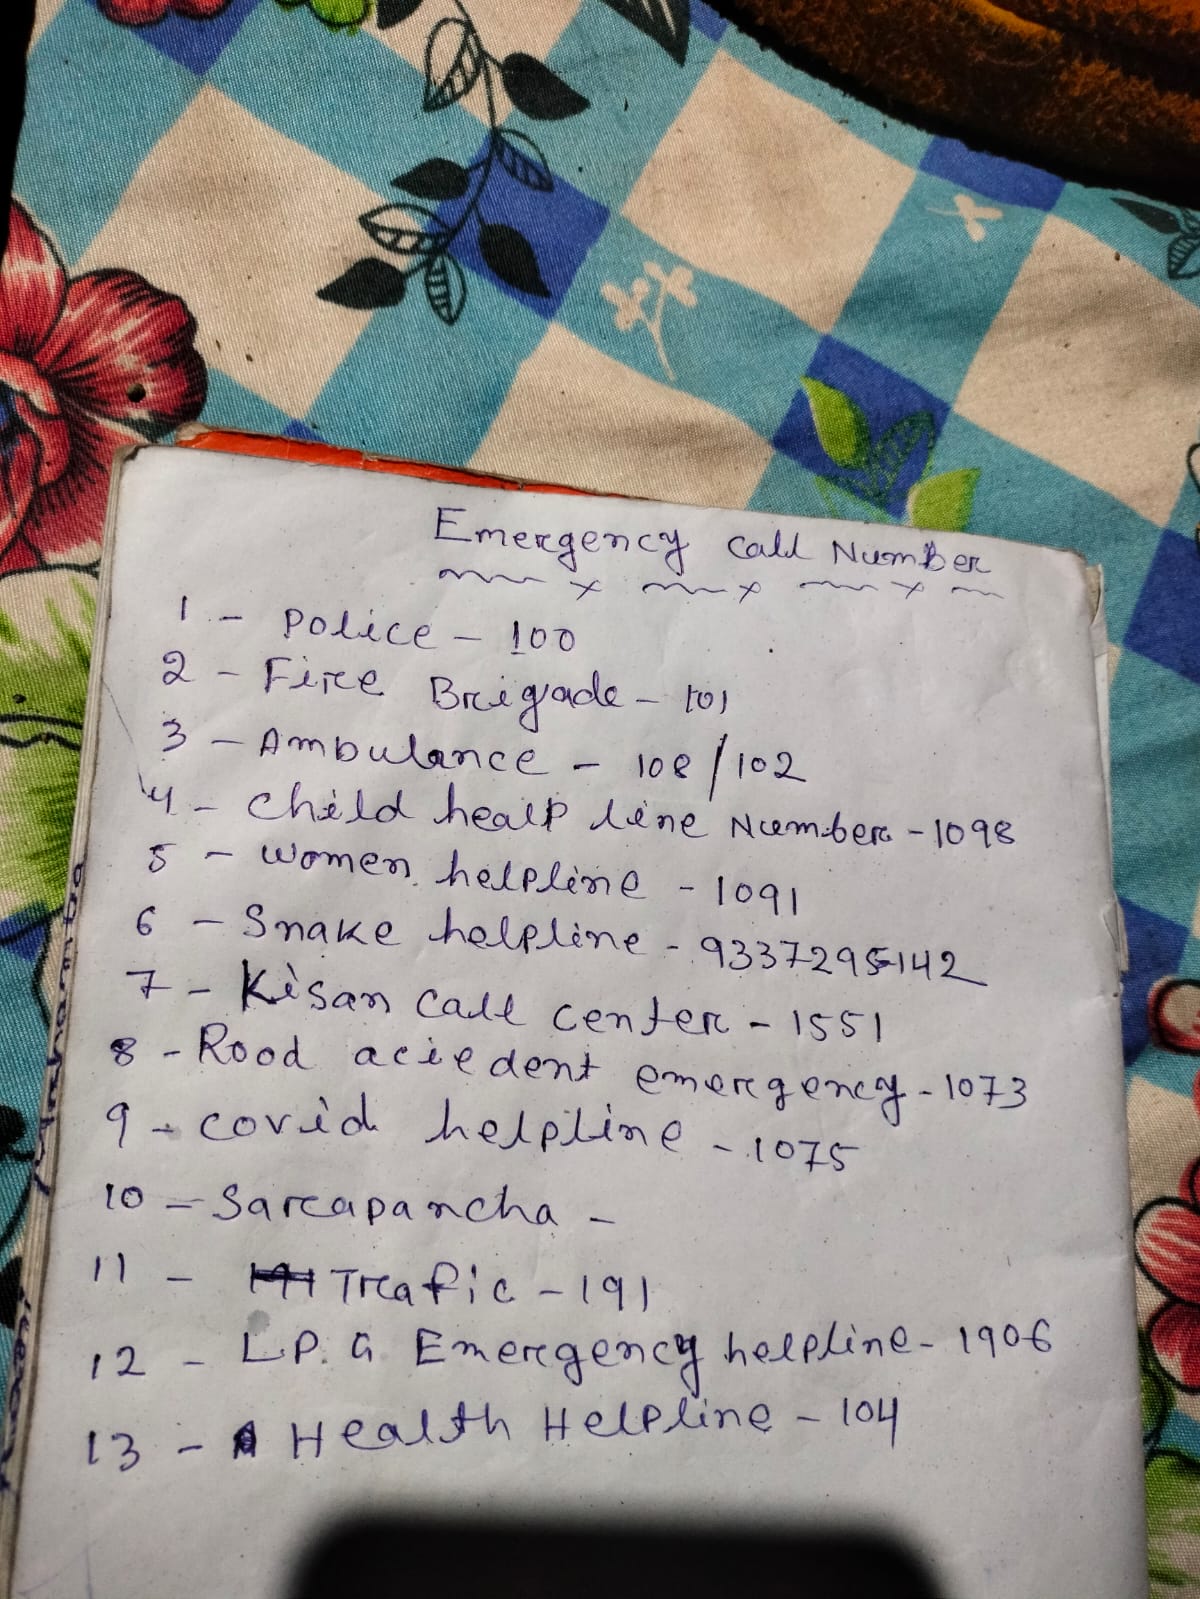 Emergency Call Number
1 - Police - 100
2 - Fire Brigade - 101
3 - Ambulance - 108/102
4 - Child healp line Number - 1098
5 - Women helpline - 1091
6 - Snake helpline - 9337295142
7 - Kisan Call center - 1551
8 - Rood aciedent emergency - 1073
9 - covid helpline - 1075
10 - Sarapancha -
11 - Trafic - 191
12 - L.P.G Emergency helpline - 1906
13 - Health Helpline - 104